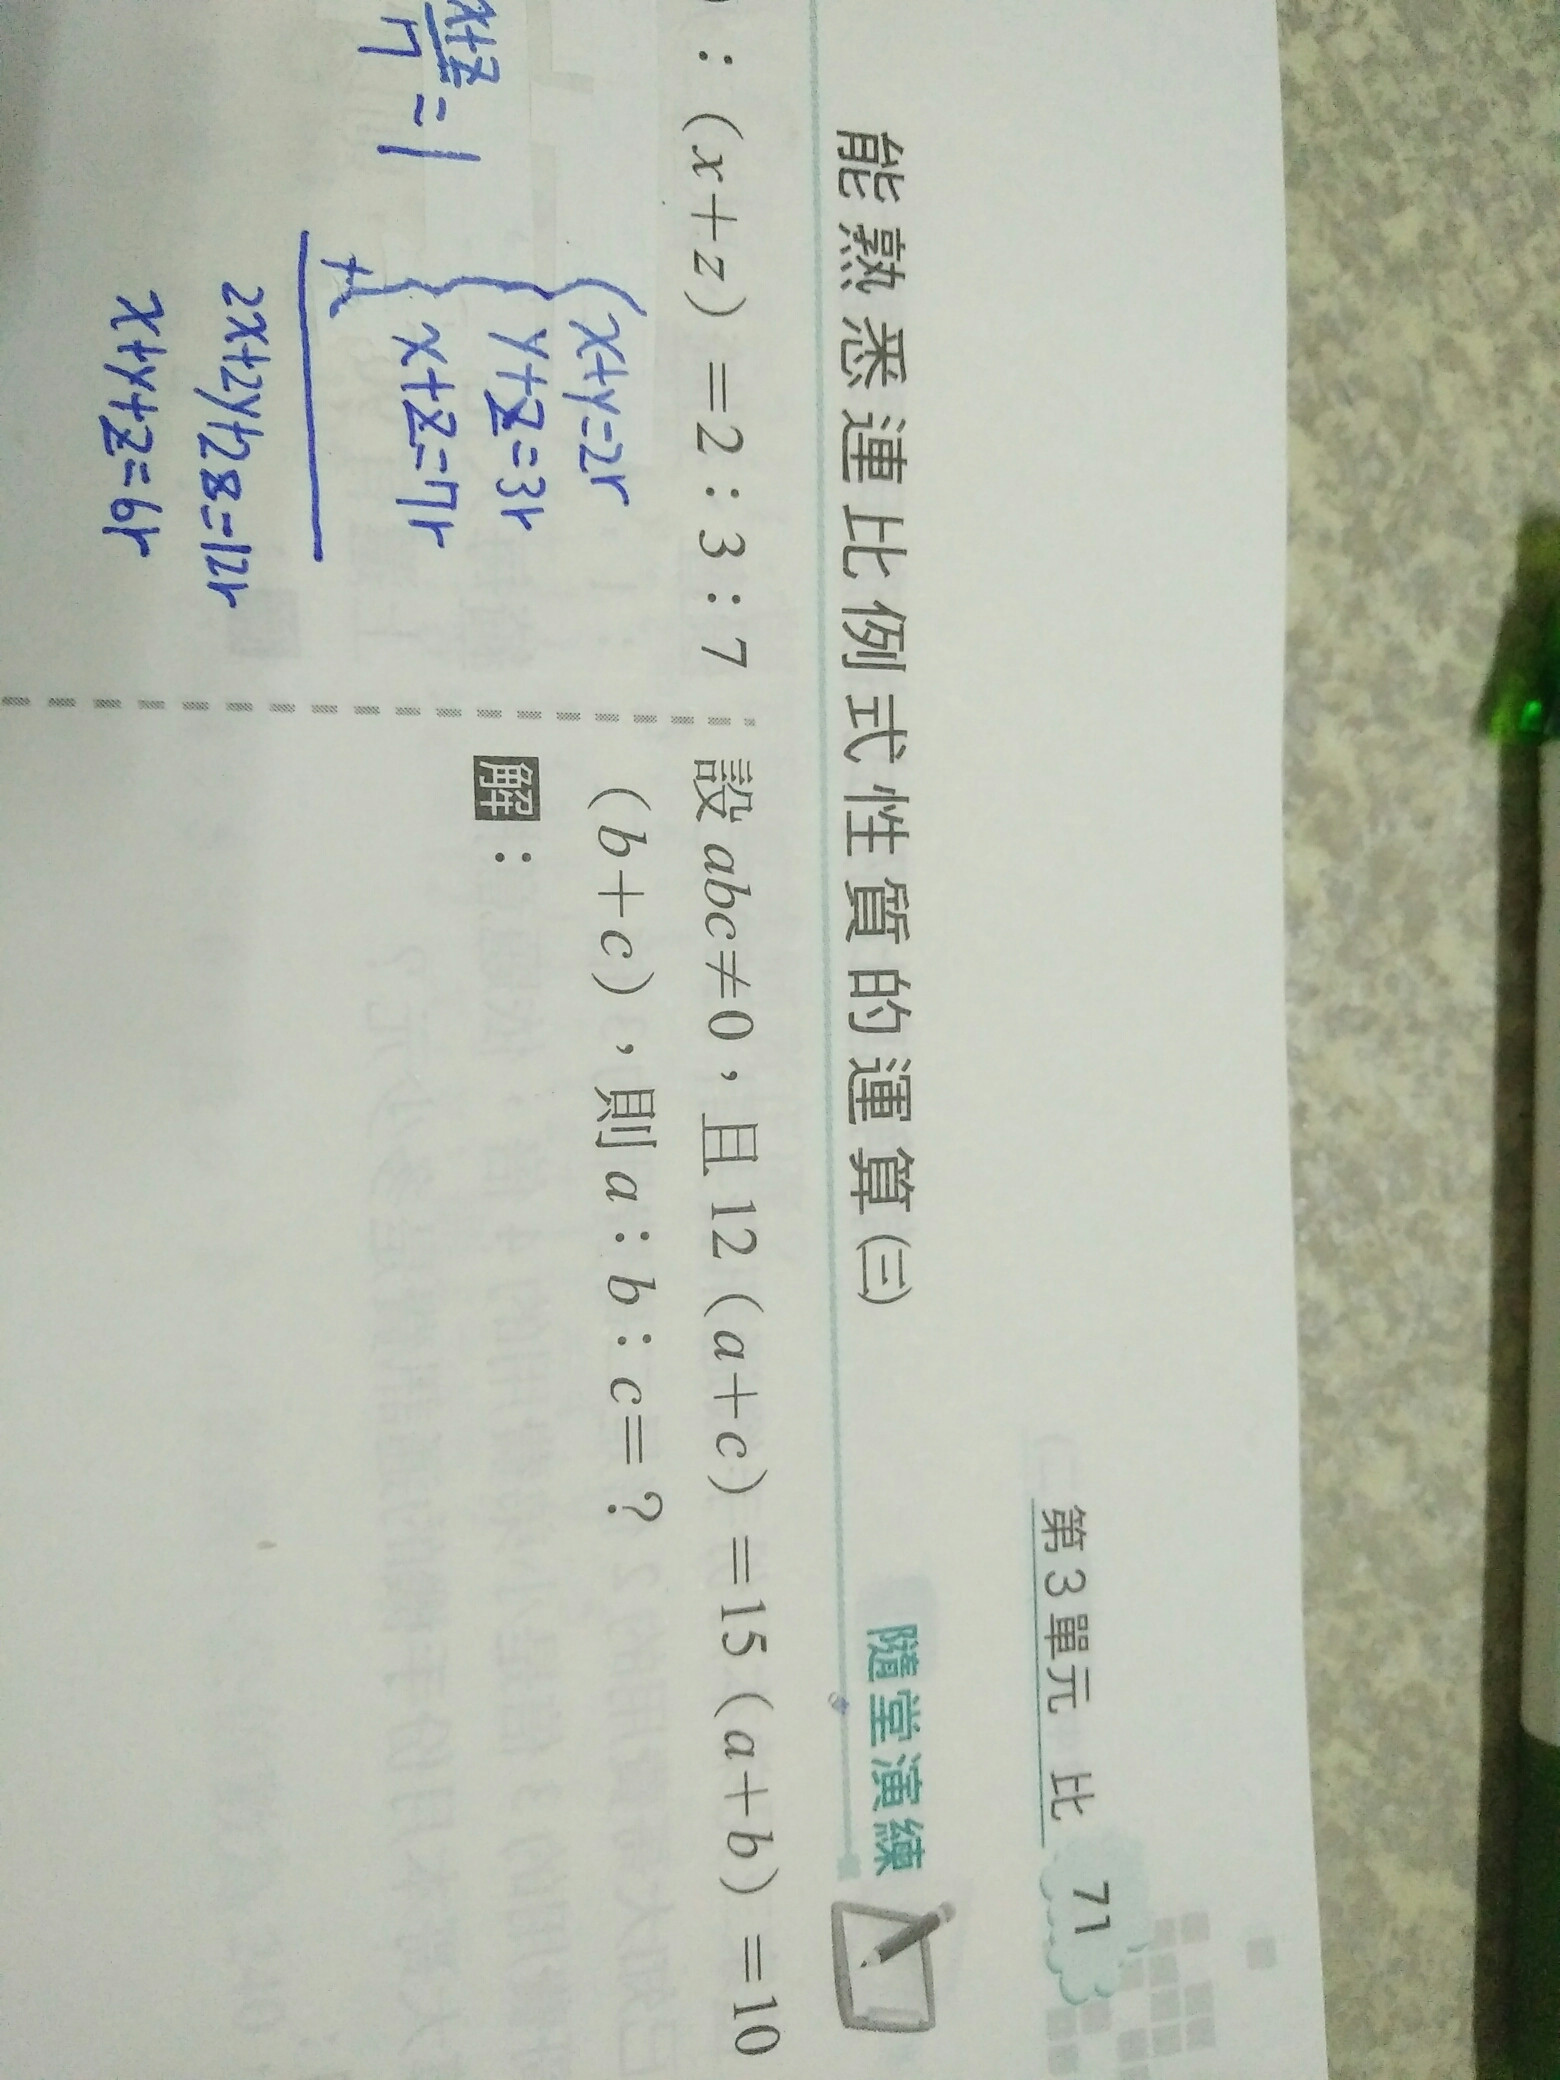 第3單元 比 71
能熟悉連比例式性質的運算(三)
隨堂演練
:(x+z)=2:3:7
x+z/7=1
x+y=2r
y+z=3r
+) x+z=7r
2x+2y+2z=12r
x+y+z=6r
設abc≠0,且12(a+c)=15(a+b)=10
(b+c),則a:b:c=?
解: